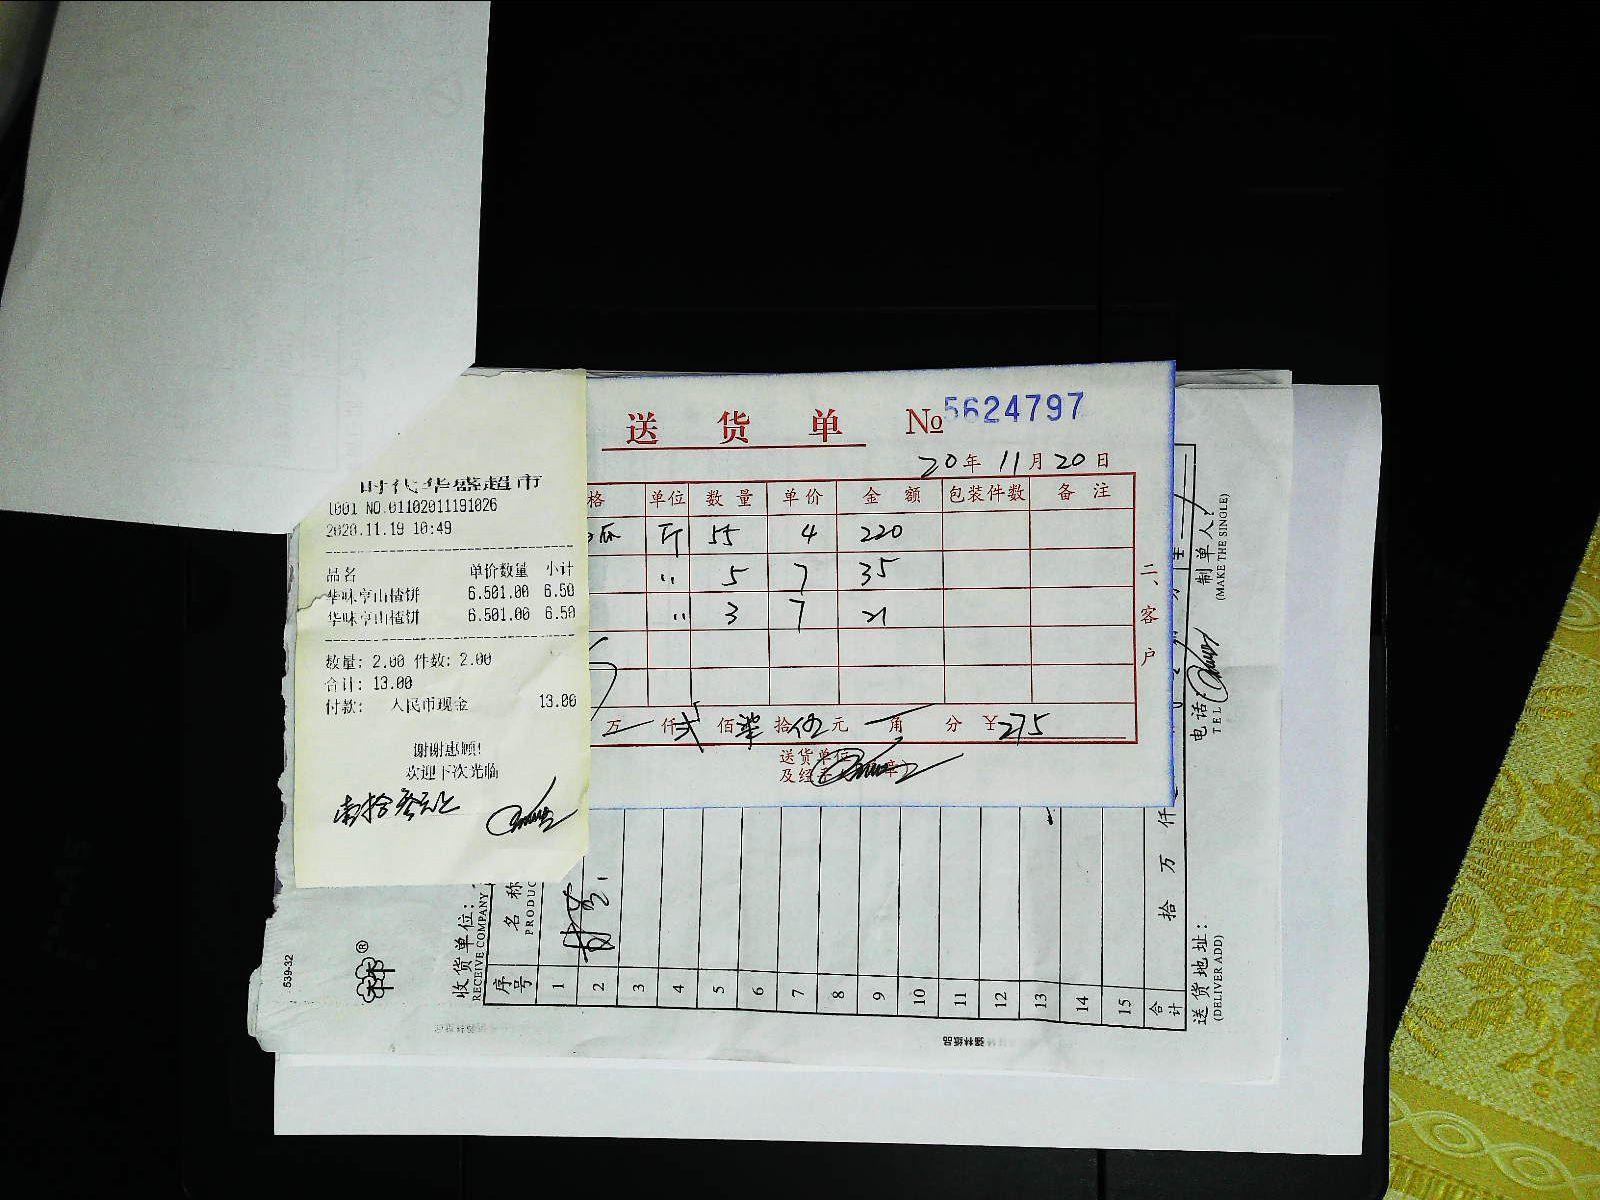 时代华盛超市
1001 NO.01102011191026
2020.11.19 10:49
品名 单价数量 小计
华味亨山楂饼 6.501.00 6.50
华味亨山楂饼 6.501.00 6.50
数量: 2.00 件数: 2.00
合计: 13.00
付款: 人民币现金 13.00
谢谢惠顾!
欢迎下次光临
送货单 № 5624797
20年11月20日
格 单位 数量 单价 金额 包装件数 备注
瓜 斤 55 4 220
〃 5 7 35
〃 3 7 21
万 仟 贰 佰 柒 拾 伍 元 角 分 ¥275
送货单位
及经
二、客户
539-32
收货单位:
RECEIVE COMPANY
序号 名称
PRODUC
1
2
3
4
5
6
7
8
9
10
11
12
13
14
15
合计 拾 万 仟
送货地址:
(DELIVER ADD)
电话:
TEL
制单人:
(MAKE THE SINGLE)